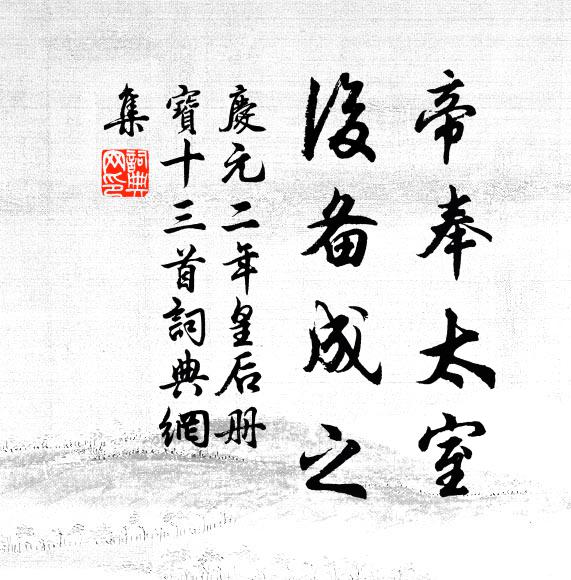 帝奉太室
後备成之
慶元二年皇后册
寶十三首詞典網
集
詞典
网印